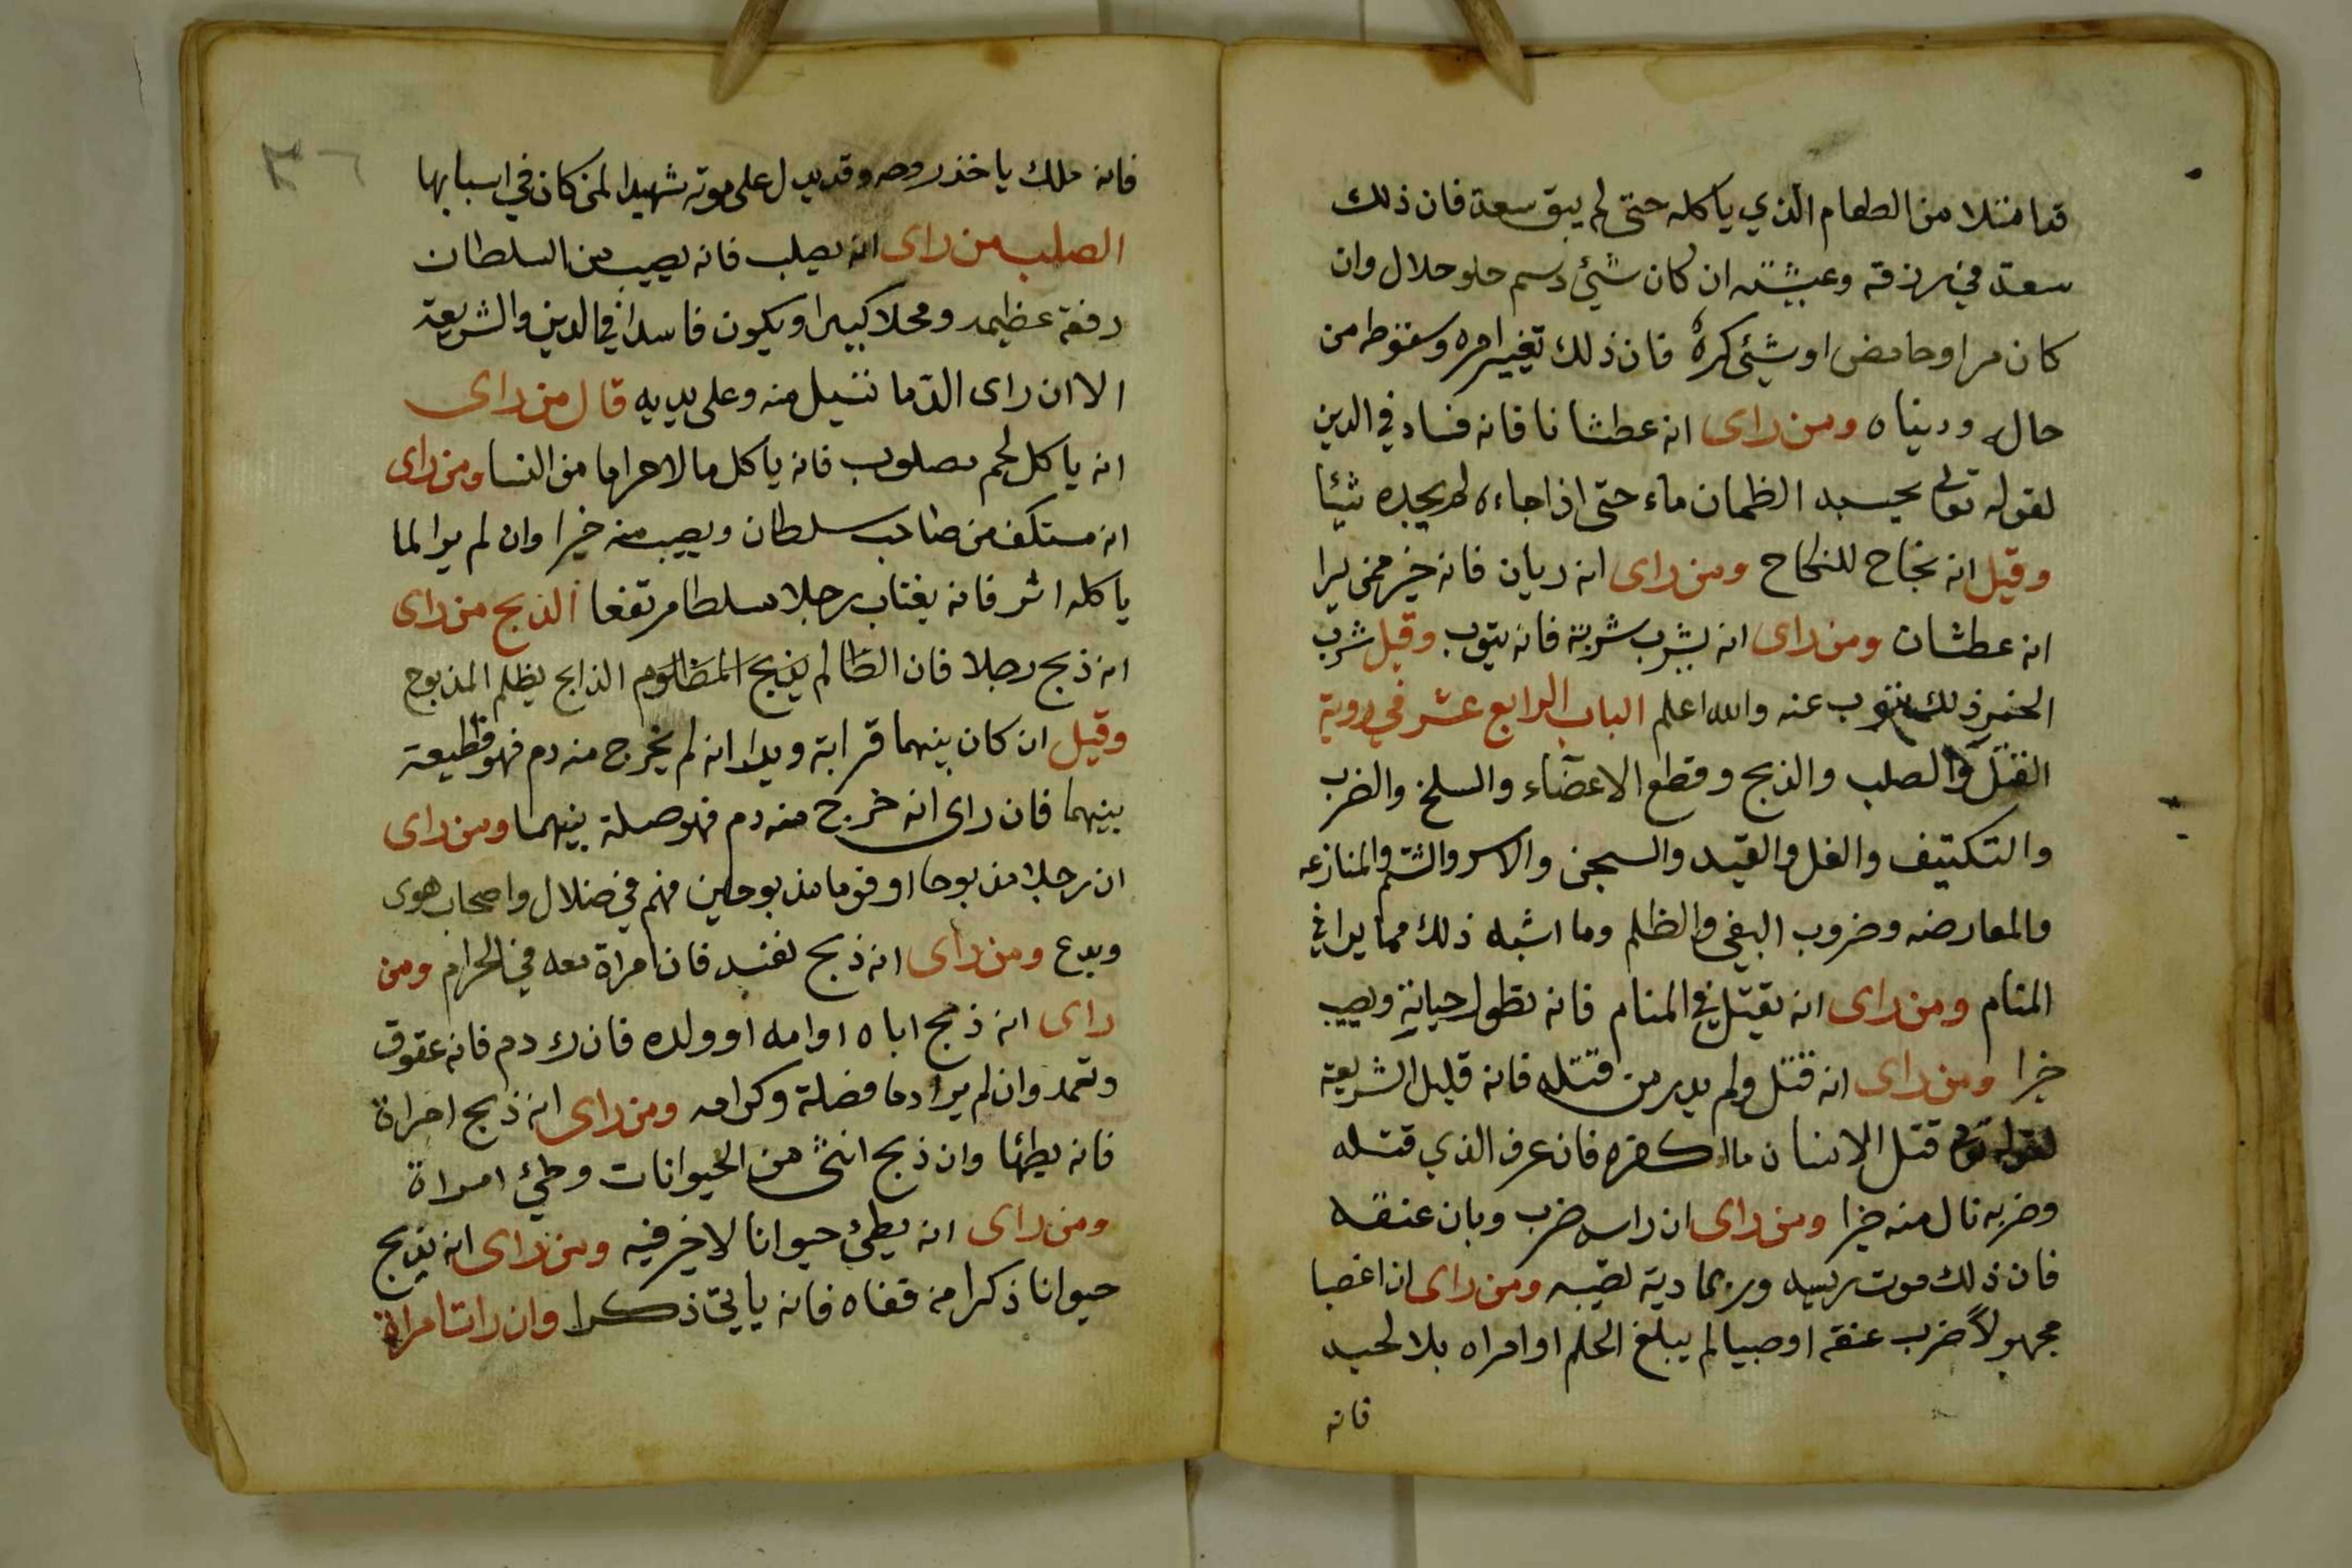 قد امتلا من الطعام الذي ياكله حتى لم يبق سعة فان ذلك
سعة في رزقه وعيشته ان كان شيئ دسم حلو حلال وان
كان مرا وحامض او شيئ كره فان ذلك تغيير امره وسقوطه من
حاله ودنياه ومن راى انه عطشانا فانه فساد في الدين
لقوله تعالى يحسبه الظمان ماء حتى اذا جاءه لم يجده شيئا
وقيل انه نجاح للنكاح ومن راى انه ريان فانه خير ممن يرا
انه عطشان ومن راى انه يشرب شربة فانه يتوب وقيل شرب
الخمر ذلك يتوب عنه والله اعلم الباب الرابع عشر في روية
القتل والصلب والذبح وقطع الاعضاء والسلخ والضرب
والتكتيف والغل والقيد والسجن والاسر والشتم والمنازعه
والمعارضه وضروب البغى والظلم وما اشبه ذلك مما يرا في
المنام ومن راى انه يقتل في المنام فانه تطول حياته ويصيب
خيرا ومن راى انه قتل ولم يدر من قتله فانه قليل الشريعة
لقوله تعالى قتل الانسان ما اكفره فان عرف الذي قتله
وضربه نال منه خيرا ومن راى ان راسه ضرب وبان عنقه
فان ذلك موت رييسه وربما دية تصيبه ومن راى ان اغصبا
مجهولاً ضرب عنقه او صبيا لم يبلغ الحلم او امراه بلا لحيه
فانه
٣٦
فانه ملك ياخذ روحه وقد يدل على موته شهيدا لمن كان في اسبابها
الصلب من راى انه يصلب فانه يصيب من السلطان
رفعة عظيمه ومحلا كبيرا ويكون فاسدا في الدين والشريعة
الا ان راى الدما تسيل منه وعلى يديه قال من راى
انه ياكل لحم مصلوب فانه ياكل مالا حراما من النسا ومن راى
انه مستكف من صاحب سلطان ويصيب منه خيرا وان لم يرا لما
ياكله اثر فانه يغتاب رجلا مسلطا مرتفعا الذبح من راى
انه ذبح رجلا فان الظالم يذبح المظلوم الذابح يظلم المذبوح
وقيل ان كان بينهما قرابة ويرا انه لم يخرج منه دم فهو قطيعة
بينهما فان راى انه خرج منه دم فهو صلة بينهما ومن راى
ان رجلا مذبوحا او قوما مذبوحين فهم في ضلال واصحاب هوى
وبدع ومن راى انه ذبح نفسه فان امراة معه في الحرام ومن
راى انه ذبح اباه او امه او ولده فان رك دم فانه عقوق
وتعمد وان لم يرا دما فضلة وكرامه ومن راى انه ذبح امراة
فانه يطئها وان ذبح انثى من الحيوانات وطئ امراة
ومن راى انه يطئ حيوانا لا خير فيه ومن راى انه يذبح
حيوانا ذكرا من قفاه فانه ياتي ذكرا وان رات امراة